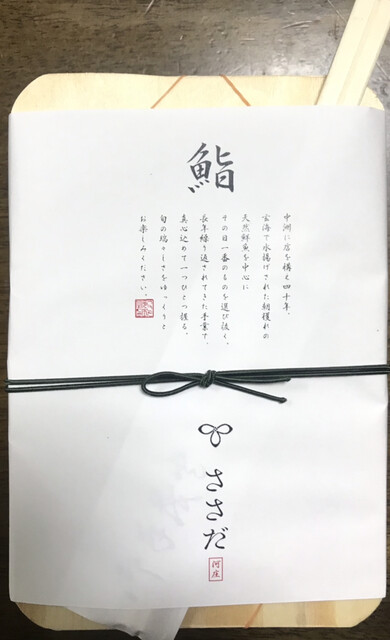 鮨
中洲に店を構え四十年。
玄海で水揚げされた朝獲れの
天然鮮魚を中心に
その日一番のものを選び抜く。
長年繰り返されてきた手業で、
真心込めて一つひとつ握る。
旬の瑞々しさをゆっくりと
お楽しみください。
ささだ
河庄